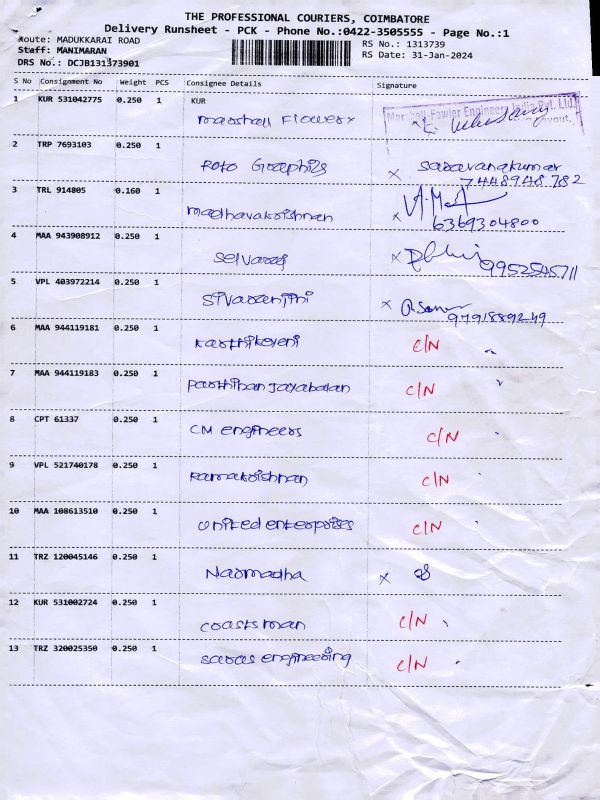 THE PROFESSIONAL COURIERS, COIMBATORE
Delivery Runsheet - PCK - Phone No.:0422-3505555 - Page No.:1
Route: MADUKKARAI ROAD
Staff: MANIMARAN
DRS No.: DCJB131373901
RS No.: 1313739
RS Date: 31-Jan-2024
S No Consignment No Weight PCS Consignee Details Signature
1 KUR 531042775 0.250 1 KUR
Marshall Flower x
Marshall-Fowler Engineers India Pvt. Ltd.
2 TRP 7693103 0.250 1
Foto Graphis x saravanakumar
7448948782
3 TRL 914805 0.160 1
madhavakrishnan x
6369304800
4 MAA 943908912 0.250 1
selvaraj x
9952545711
5 VPL 403972214 0.250 1
Sivaranjini x
9791889249
6 MAA 944119181 0.250 1
Karthikeyeni C/N
7 MAA 944119183 0.250 1
Parthiban Jayabalan C/N
8 CPT 61337 0.250 1
CM engineers C/N
9 VPL 521740178 0.250 1
Ramakrishnan C/N
10 MAA 108613510 0.250 1
United enterprises C/N
11 TRZ 120045146 0.250 1
Narmadha x
12 KUR 531002724 0.250 1
coastsman C/N
13 TRZ 320025350 0.250 1
saras engineering C/N